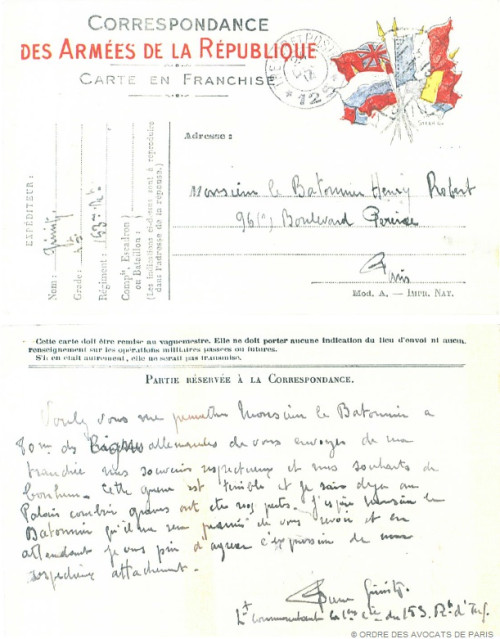 CORRESPONDANCE
DES ARMÉES DE LA RÉPUBLIQUE
CARTE EN FRANCHISE
TRESOR ET POSTES
* 12 *
EXPÉDITEUR :
Nom :
Grade :
Régiment : 153e Rt
Compie, Escadron
ou Bataillon :
(Les indications ci-dessus sont à reproduire
dans l'adresse de la réponse.)
Adresse :
Monsieur le Batonnier Henry Robert
96 Boulevard Pereire
Paris
Mod. A. — IMPR. NAT.
Cette carte doit être remise au vaguemestre. Elle ne doit porter aucune indication du lieu d'envoi ni aucun
renseignement sur les opérations militaires passées ou futures.
S'il en était autrement, elle ne serait pas transmise.
PARTIE RÉSERVÉE À LA CORRESPONDANCE.
Voulez vous me permettre Monsieur le Batonnier a
80 m. des allemandes de vous envoyer de ma
tranchée mes souvenirs respectueux et mes souhaits de
bonheur. Cette guerre est terrible et je sais déjà au
Palais combien graves ont été nos pertes. J'espère Monsieur le
Batonnier qu'il me sera permis de vous revoir et en
attendant je vous prie d'agréer l'expression de mon
respectueux attachement.
Pierre
Lt commandant la 1ère Cie du 153. Rt d'Inf.
© ORDRE DES AVOCATS DE PARIS